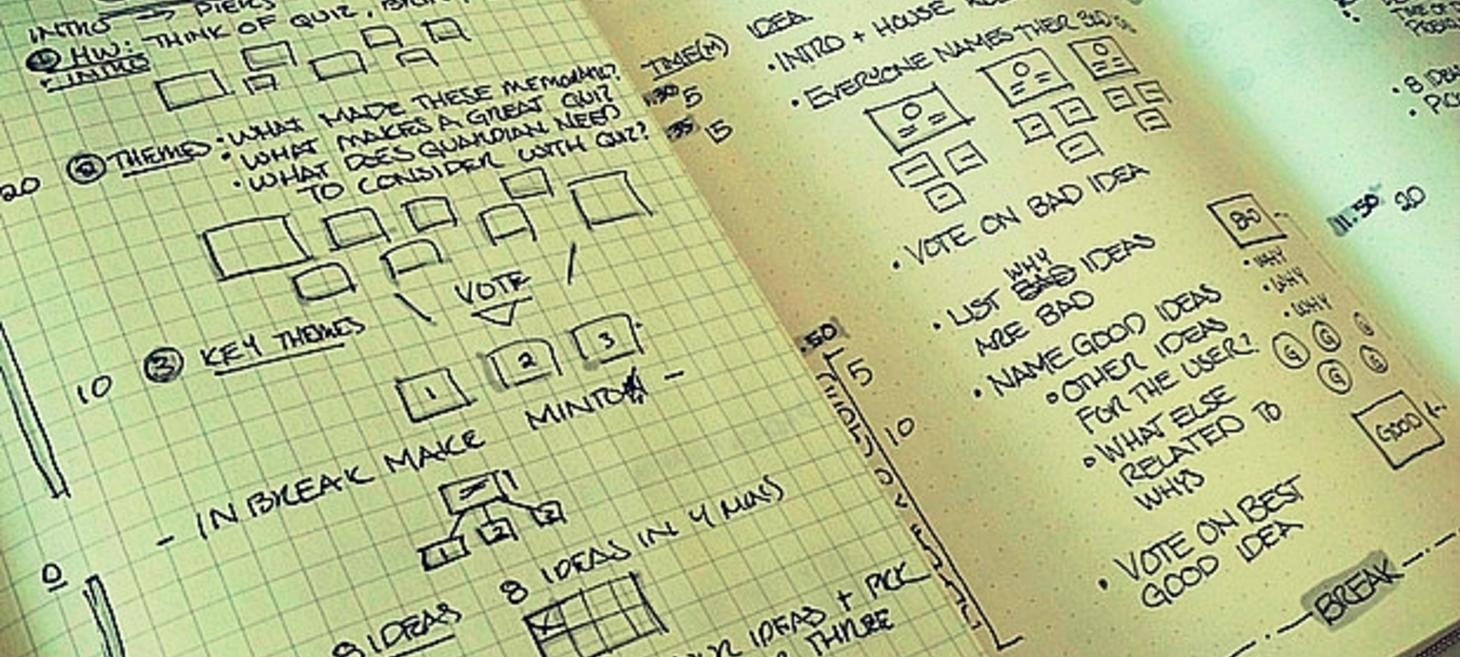 INTRO → PIERS
① HW: THINK OF QUIZ,
• INTRO
20
② THEMES: • WHAT MADE THESE MEMORABLE?
• WHAT MAKES A GREAT QUIZ
• WHAT DOES GUARDIAN NEED
TO CONSIDER WITH QUIZ?
VOTE
10
③ KEY THEMES
1 2 3
- IN BREAK MAKE MINTO -
1 2 3
0
8 IDEAS 8 IDEAS IN 4 MINS
IDEAS + PICK
THREE
TIME(M)
5
15
.50
5
10
IDEA
• INTRO + HOUSE
• EVERYONE NAMES THEIR BAD
• VOTE ON BAD IDEA
WHY
• LIST BAD IDEAS
ARE BAD
BAD
• WHY
• WHY
• WHY
• NAME GOOD IDEAS
• OTHER IDEAS
FOR THE USER?
• WHAT ELSE
RELATED TO
WHYS
G G G
G G
GOOD
• VOTE ON BEST
GOOD IDEA
BREAK
11.50 20
• 8 IDEAS